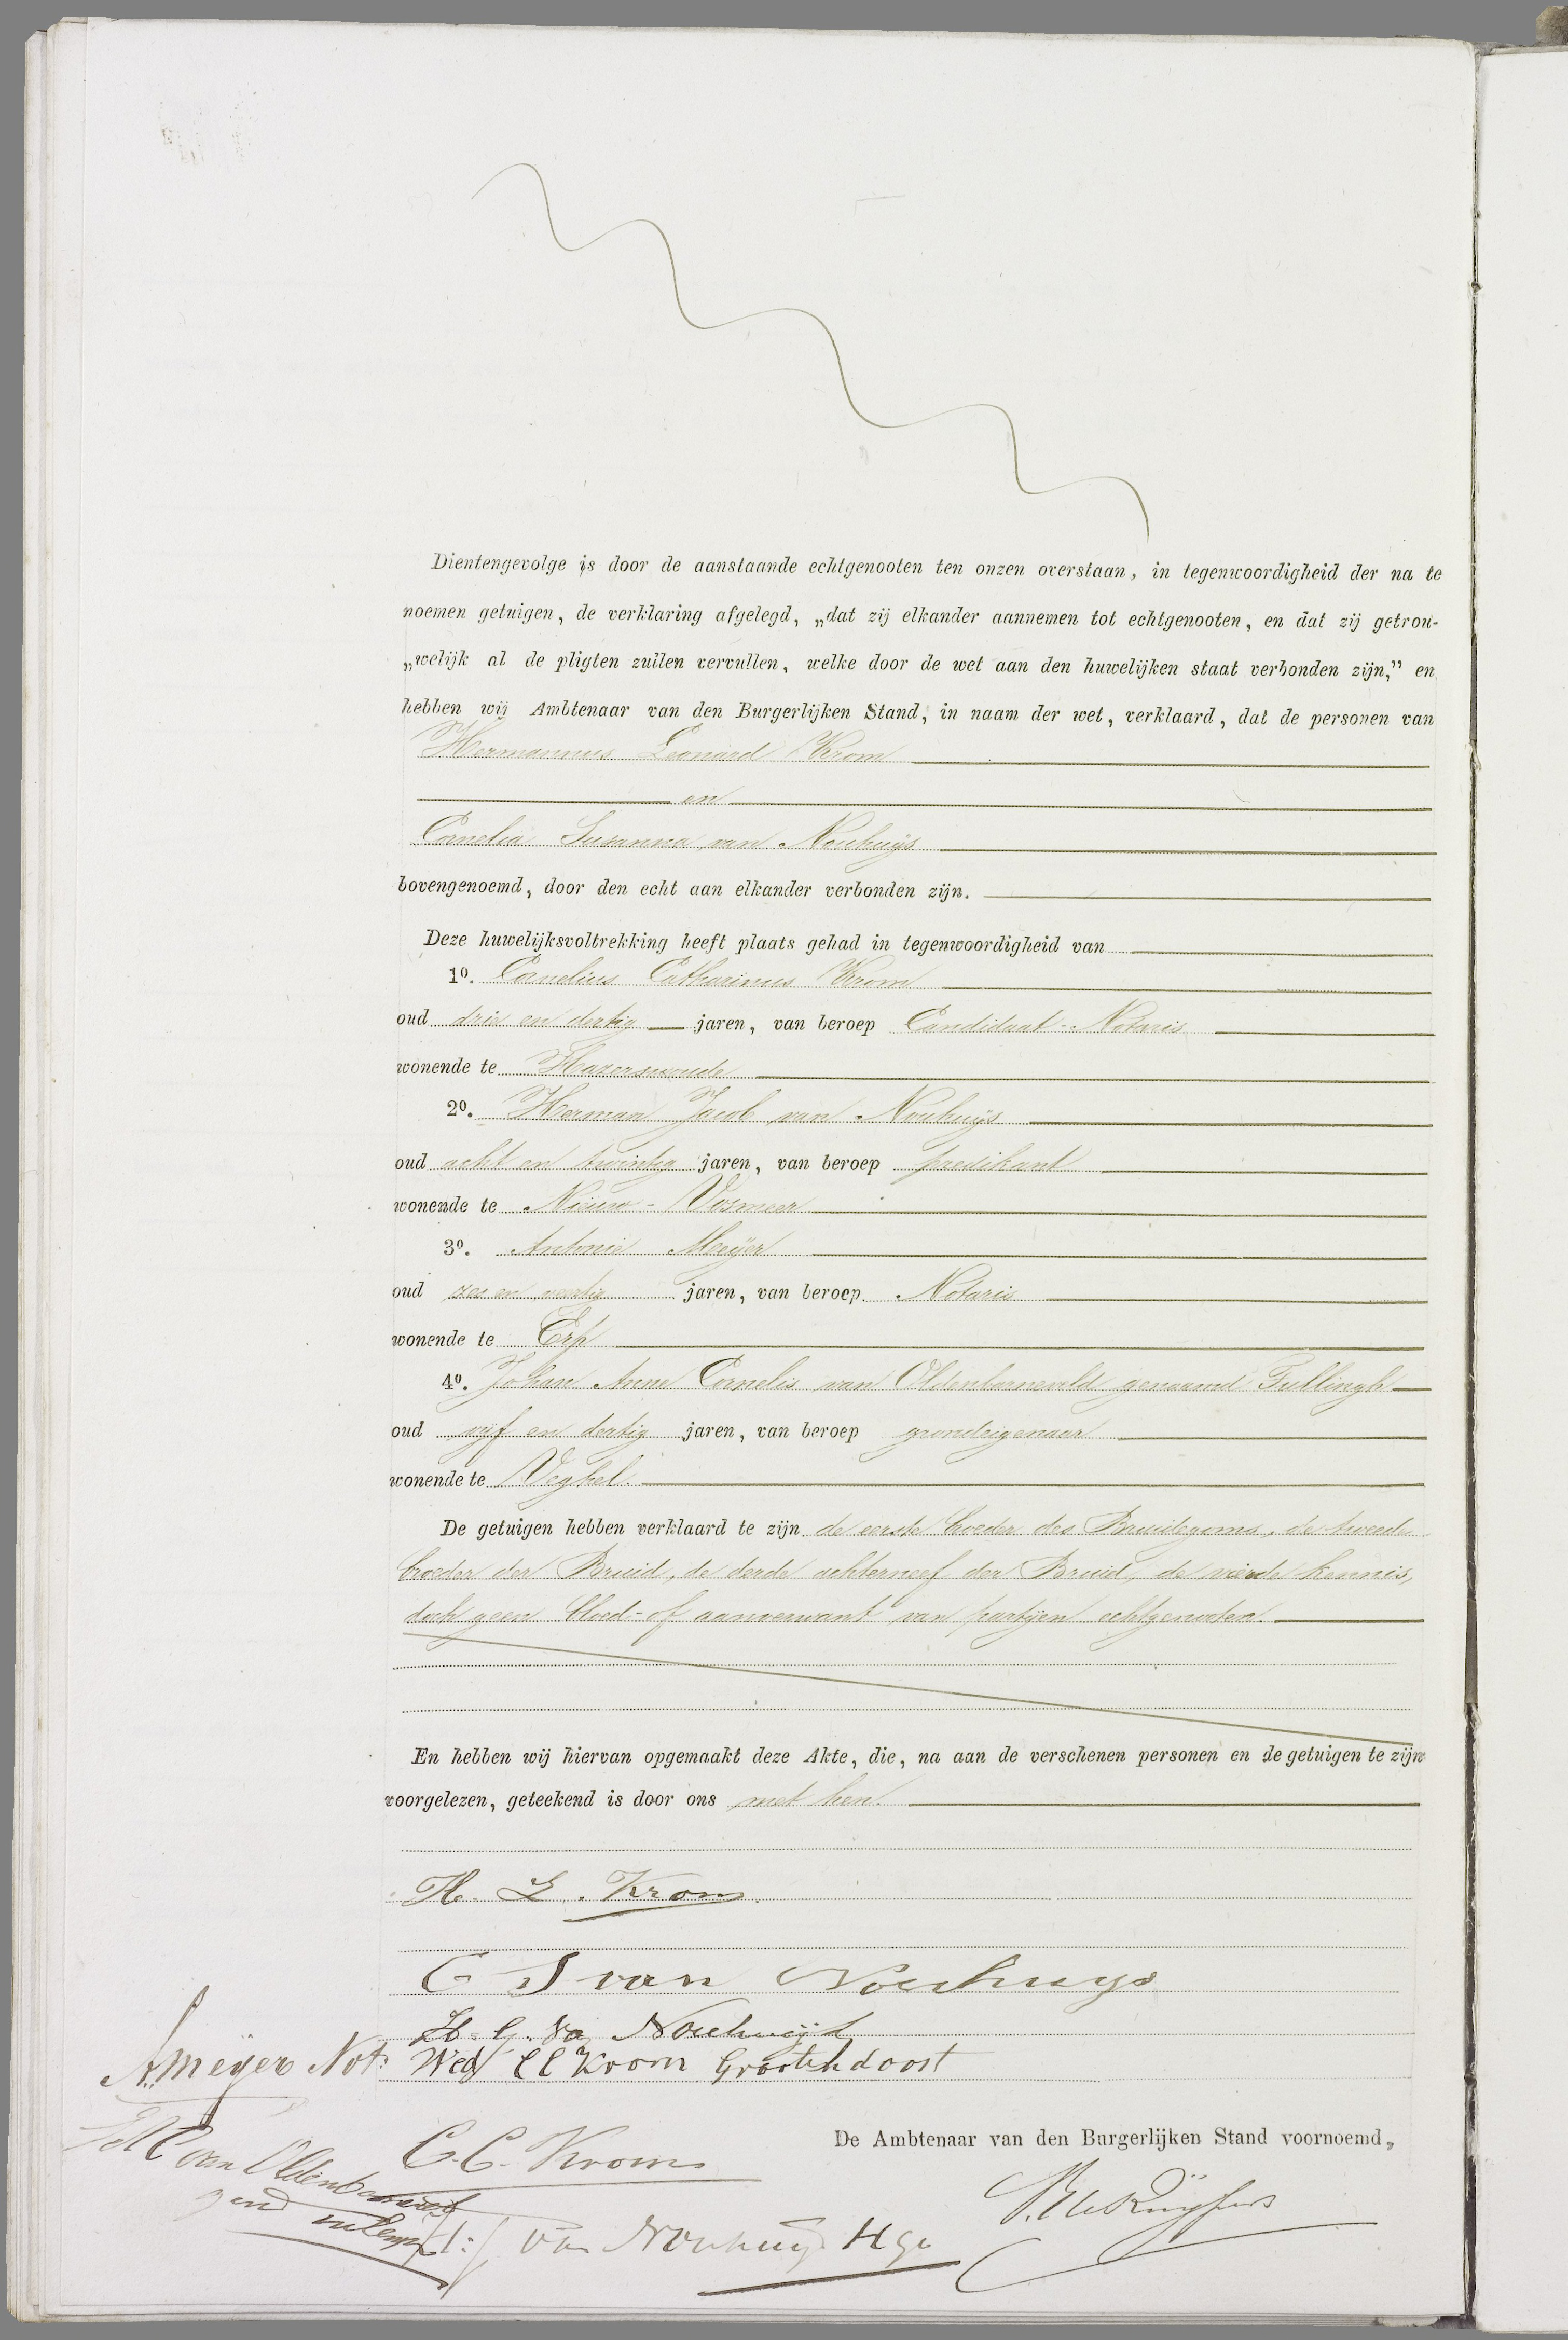 Dientengevolge is door de aanstaande echtgenooten ten onzen overstaan, in tegenwoordigheid der na te
noemen getuigen, de verklaring afgelegd, „dat zij elkander aannemen tot echtgenooten, en dat zij getrou-
„welijk al de pligten zullen vervullen, welke door de wet aan den huwelijken staat verbonden zijn,” en
hebben wij Ambtenaar van den Burgerlijken Stand, in naam der wet, verklaard, dat de personen van
Hermannus Leonard Krom
en
Cornelia Susanna van Nouhuijs
bovengenoemd, door den echt aan elkander verbonden zijn.
Deze huwelijksvoltrekking heeft plaats gehad in tegenwoordigheid van
1º. Cornelius Catharinus Krom
oud drie en dertig jaren, van beroep Candidaat-Notaris
wonende te Hazerswoude
2º. Herman Jacob van Nouhuijs
oud acht en twintig jaren, van beroep predikant
wonende te Nieuw-Vosmeer
3º. Antonie Meijer
oud zes en veertig jaren, van beroep Notaris
wonende te Erp
4º. Johan Anne Cornelis van Oldenbarneveld genaamd Tullingh
oud vijf en dertig jaren, van beroep grondeigenaar
wonende te Veghel.
De getuigen hebben verklaard te zijn de eerste broeder des Bruidegoms, de tweede
broeder der Bruid, de derde achterneef der Bruid, de vierde kennis,
doch geen bloed- of aanverwant van partijen echtgenooten.
En hebben wij hiervan opgemaakt deze Akte, die, na aan de verschenen personen en de getuigen te zijn
voorgelezen, geteekend is door ons met hen.
H. L. Krom.
C S van Nouhuys
van Nouhuijs
AMeijer Not:
Wed C C Krom Grootendoorst
C. C. Krom
De Ambtenaar van den Burgerlijken Stand voornoemd,
van Oldenbarneveld
van Nouhuys